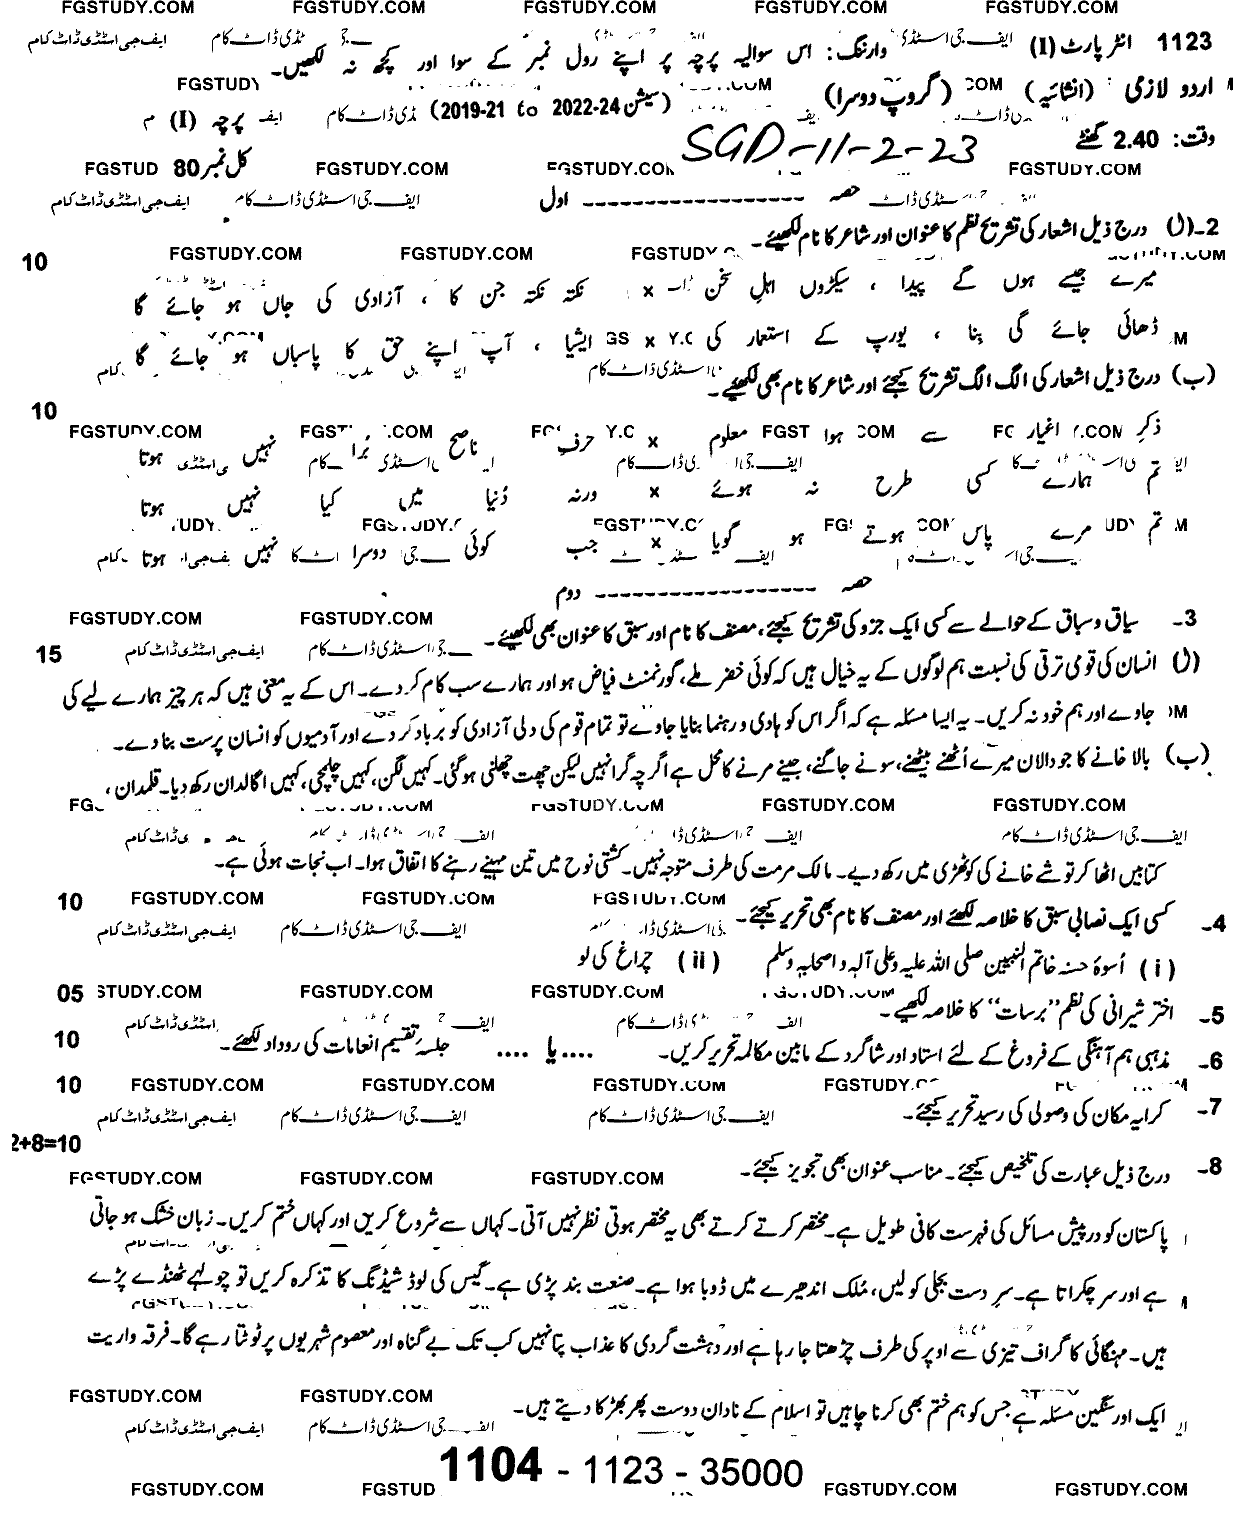 FGSTUDY.COM FGSTUDY.COM FGSTUDY.COM FGSTUDY.COM FGSTUDY.COM
1123 انٹر پارٹ (I) وارننگ: اس سوالیہ پرچہ پر اپنے رول نمبر کے سوا اور کچھ نہ لکھیں۔
اردو لازمی (انشائیہ) (گروپ دوسرا) (سیشن 2019-21 to 2022-24) پرچہ (I)
وقت: 2.40 گھنٹے SGD-11-2-23 کل نمبر 80
حصہ ------------------ اول
2-(ا) درج ذیل اشعار کی تشریح نظم کا عنوان اور شاعر کا نام لکھیئے۔ 10
میرے جیسے ہوں گے پیدا ، سیکڑوں اہلِ سخن x نکتہ نکتہ جن کا ، آزادی کی جاں ہو جائے گا
ڈھائی جائے گی بنا ، یورپ کے استعمار کی x ایشیا ، آپ اپنے حق کا پاسباں ہو جائے گا
(ب) درج ذیل اشعار کی الگ الگ تشریح کیجئے اور شاعر کا نام بھی لکھیئے۔ 10
ذکرِ اغیار سے ہوا معلوم x حرفِ ناصح برا نہیں ہوتا
تم ہمارے کسی طرح نہ ہوئے x ورنہ دُنیا میں کیا نہیں ہوتا
تم مرے پاس ہوتے ہو گویا x جب کوئی دوسرا نہیں ہوتا
حصہ ------------------ دوم
3- سیاق و سباق کے حوالے سے کسی ایک جزو کی تشریح کیجئے، مصنف کا نام اور سبق کا عنوان بھی لکھیئے۔ 15
(ا) انسان کی قومی ترقی کی نسبت ہم لوگوں کے یہ خیال ہیں کہ کوئی خضر ملے، گورنمنٹ فیاض ہو اور ہمارے سب کام کر دے۔ اس کے یہ معنی ہیں کہ ہر چیز ہمارے لیے کی
جاوے اور ہم خود نہ کریں۔ یہ ایسا مسئلہ ہے کہ اگر اس کو ہادی و رہنما بنایا جاوے تو تمام قوم کی دلی آزادی کو برباد کر دے اور آدمیوں کو انسان پرست بنا دے۔
(ب) بالا خانے کا جو دالان میرے اُٹھنے بیٹھنے، سونے جاگنے، جینے مرنے کا محل ہے اگرچہ گرا نہیں لیکن چھت چھلنی ہو گئی۔ کہیں لگن، کہیں چلمچی، کہیں اگالدان رکھ دیا۔ قلمدان ،
کتابیں اٹھا کر توشے خانے کی کوٹھڑی میں رکھ دیے۔ مالک مرمت کی طرف متوجہ نہیں۔ کشتی نوح میں تین مہینے رہنے کا اتفاق ہوا۔ اب نجات ہوئی ہے۔
4- کسی ایک نصابی سبق کا خلاصہ لکھئے اور مصنف کا نام بھی تحریر کیجئے۔ 10
(i) اُسوۂ حسنہ خاتم النبیین صلی اللہ علیہ وعلی آلہ و اصحابہ وسلم (ii) چراغ کی لو
5- اختر شیرانی کی نظم "برسات" کا خلاصہ لکھیے۔ 05
6- مذہبی ہم آہنگی کے فروغ کے لئے استاد اور شاگرد کے مابین مکالمہ تحریر کریں۔ ....یا .... جلسۂ تقسیم انعامات کی روداد لکھئے۔ 10
7- کرایہ مکان کی وصولی کی رسید تحریر کیجئے۔ 10
8- درج ذیل عبارت کی تلخیص کیجئے۔ مناسب عنوان بھی تجویز کیجئے۔ 2+8=10
پاکستان کو درپیش مسائل کی فہرست کافی طویل ہے۔ مختصر کرتے کرتے بھی یہ مختصر ہوتی نظر نہیں آتی۔ کہاں سے شروع کریں اور کہاں ختم کریں۔ زبان خشک ہو جاتی
ہے اور سر چکراتا ہے۔ سرِ دست بجلی کو لیں، مُلک اندھیرے میں ڈوبا ہوا ہے۔ صنعت بند پڑی ہے۔ گیس کی لوڈ شیڈنگ کا تذکرہ کریں تو چولہے ٹھنڈے پڑے
ہیں۔ مہنگائی کا گراف تیزی سے اوپر کی طرف چڑھتا جا رہا ہے اور دہشت گردی کا عذاب پتا نہیں کب تک بے گناہ اور معصوم شہریوں پر ٹوٹتا رہے گا۔ فرقہ واریت
ایک اور سنگین مسئلہ ہے جس کو ہم ختم بھی کرنا چاہیں تو اسلام کے نادان دوست پھر بھڑکا دیتے ہیں۔
FGSTUDY.COM FGSTUDY.COM
1104 - 1123 - 35000
FGSTUDY.COM FGSTUD FGSTUDY.COM FGSTUDY.COM